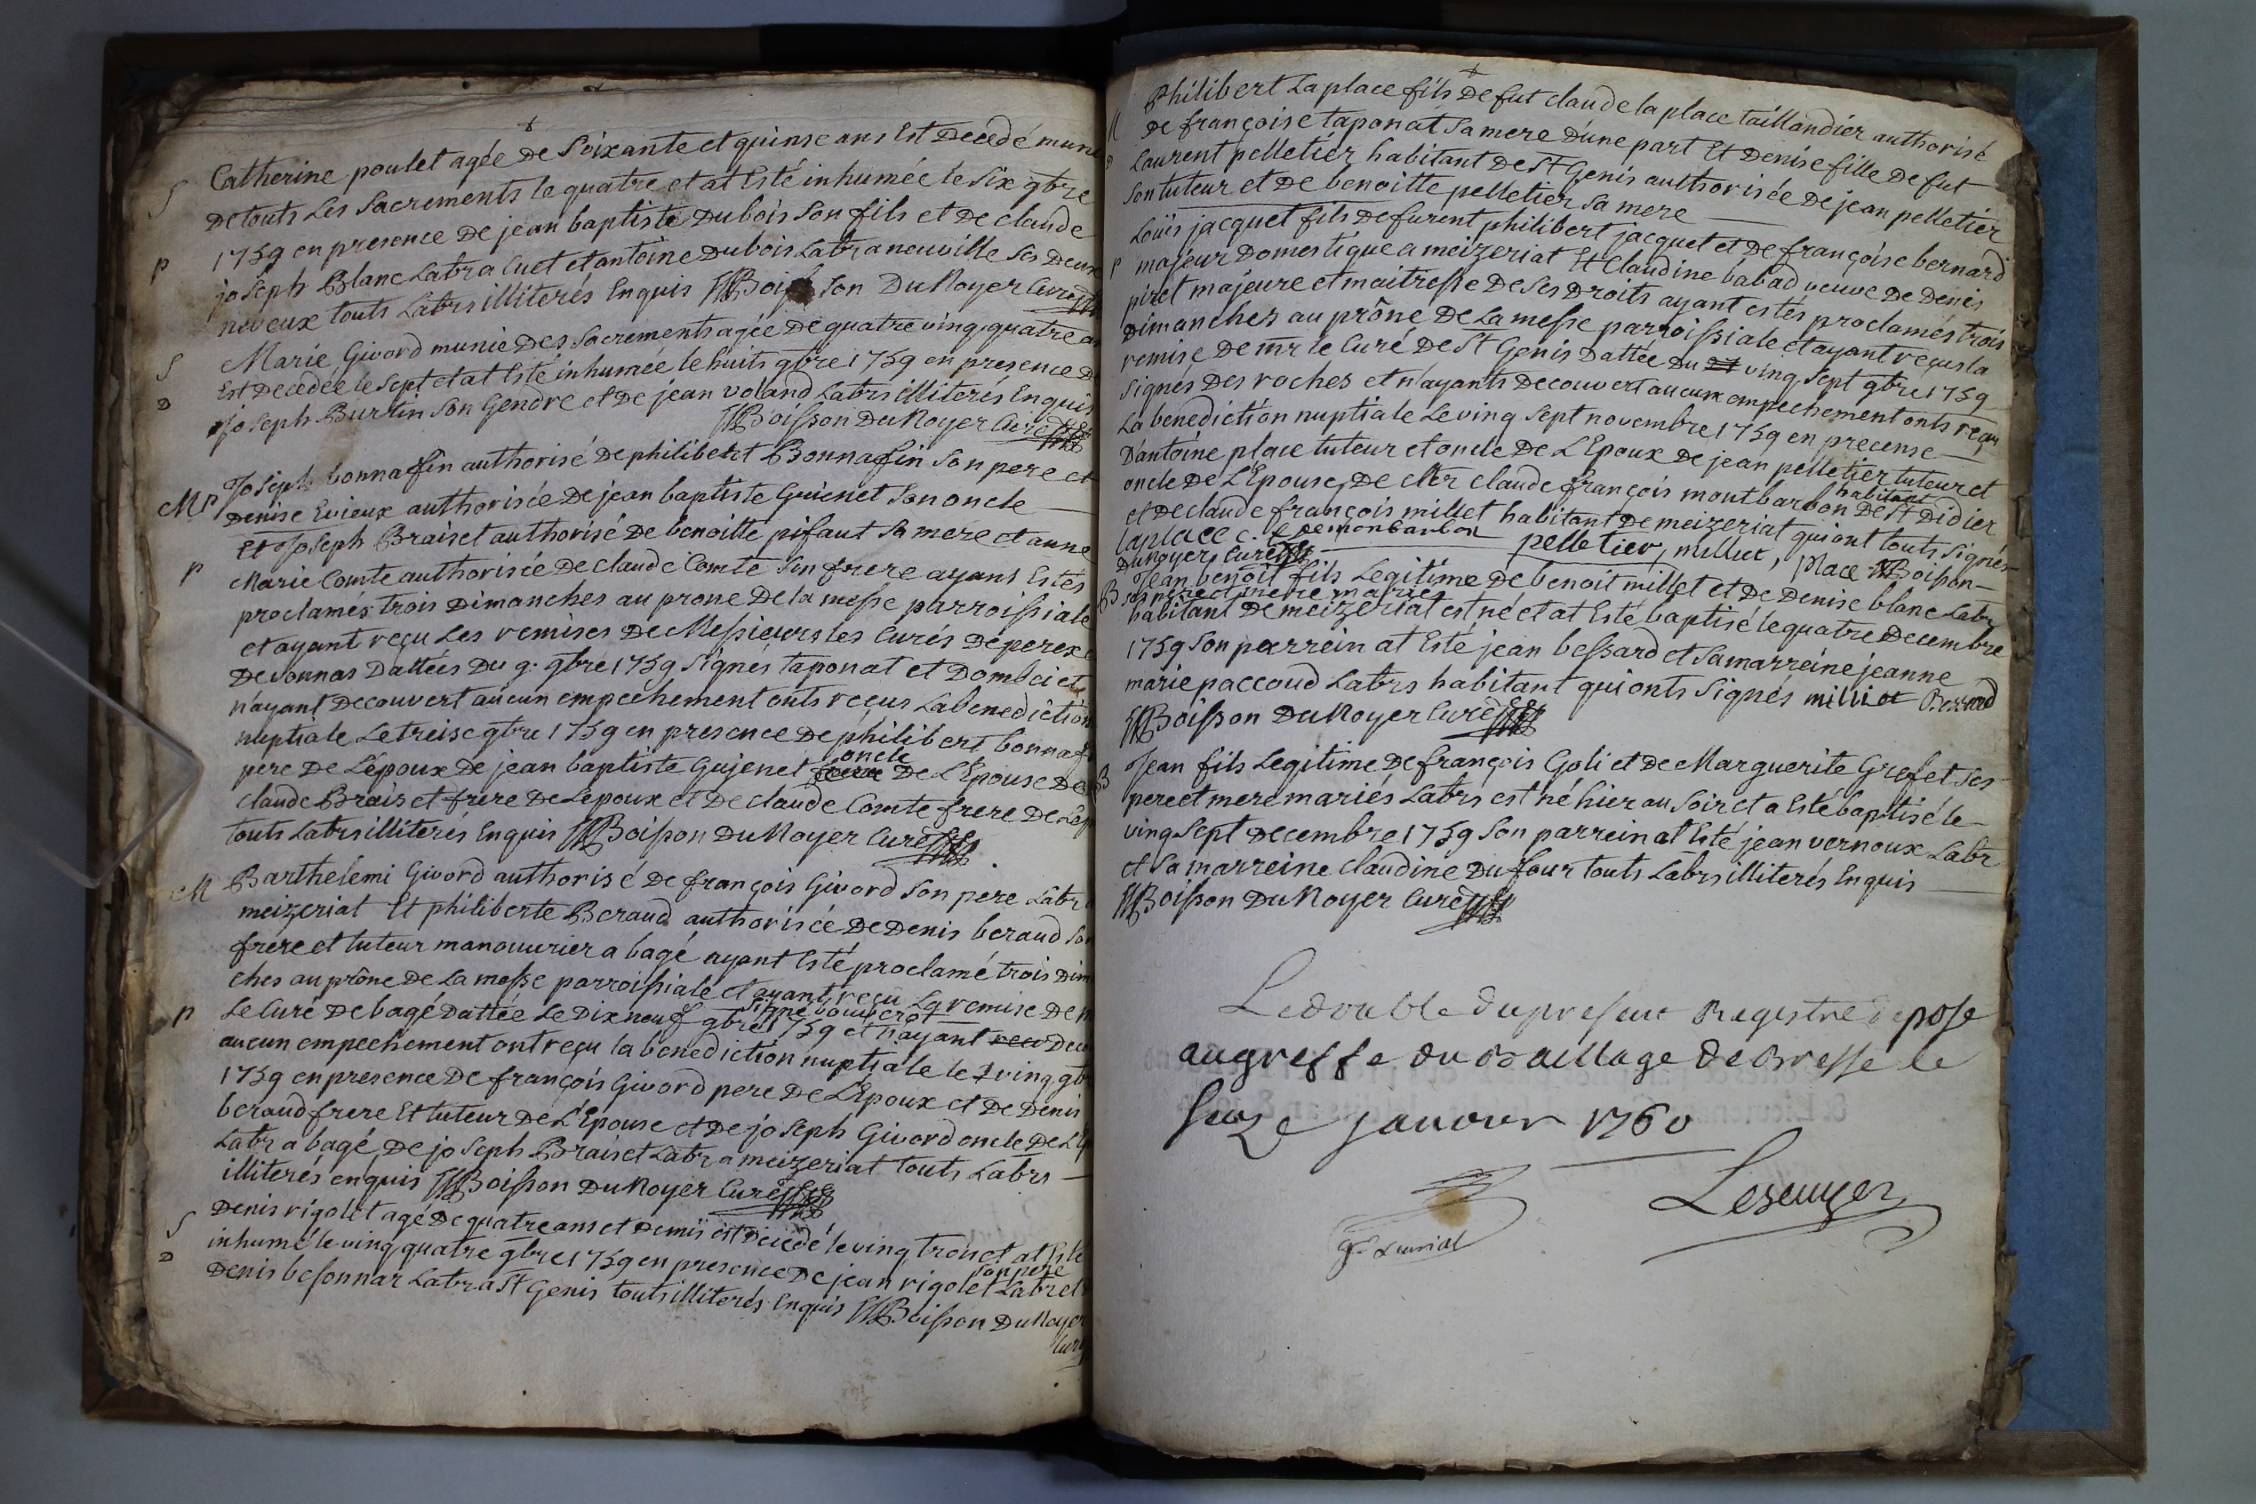 Catherine poulet agée De Soixante et quinse ans Est Decedé munie
S
De touts Les Sacrements le quatre et at Esté inhumée le Six gbre
1759 en presence De jean baptiste Dubois Son fils et De claude
P
joseph Blanc Labr a Cuet et antoine Dubois Labr a neuville Ses Deux
neveux touts Labrs illiterés Enquis Boisson Du Noyer Curé
Marie Givord munie Des Sacrements agée De quatre ving quatre
S
Est Decedée le Sept et at Esté inhumée le huits gbre 1759 en presence
D
joseph Burtin Son Gendre et De jean voland Labrs illiterés Enquis
Boisson Du Noyer Curé
Joseph bonnafin authorisé De philibert Bonnafin Son pere et
M P
Denise Evieux authorisée De jean baptiste Guienet Son oncle
Et Joseph Braiset authorisé De benoitte pifaut Sa mere et anne
P
Marie Comte authorisée De claude Comte Son frere ayant Estés
proclamés trois Dimanches au prone De la messe parroissiale
et ayant reçu Les remises De Messieurs les Curés De perex
De vonnas Dattées Du 9. gbre 1759 Signés taponat et Dombei et
n'ayant Decouvert aucun empechement onts reçus La benediction
nuptiale Le treise gbre 1759 en presence De philibert bonnaf
oncle
pere De L'epoux De jean baptiste Gujenet De L'Epouse De
claude Braiset frere De Lepoux et De claude Comte frere De
touts Labrs illiterés Enquis Boisson Du Noyer Curé
M
Barthelemi Givord authorisé De françois Givord Son pere Labr
meizeriat Et philiberte Beraud authorisée De Denis beraud
frere et tuteur manouvrier a bagé ayant Esté proclamé trois
ches au prône De La messe parroissiale et ayant reçu La remise De
P
Signé
Le Curé De bagé Dattée Le Dix neuf gbre 1759 et n'ayant
aucun empechement ont reçu la benediction nuptiale le ving
1759 en presence De françois Givord pere De L'Epoux et De Denis
beraud frere Et tuteur De L'Epouse et De joseph Givord oncle De
Labr a bagé De joseph Braiset Labr a meizeriat touts Labrs
illiterés enquis Boisson Du Noyer Curé
S
Denis rigolet agé De quatre ans et Demis est Decedé le ving trois et at Esté
D
inhumé le ving quatre gbre 1759 en presence De jean rigolet Labr et
son pere
Denis besonnar Labr a St Genis touts illiterés Enquis Boisson Du Noyer
Curé
Philibert La place fils De fut claude la place taillandier authorisé
M
De françoise taponat Sa mere D'une part Et Denise fille De fut
P
Laurent pelletier habitant De St Genis authorisée De jean pelletier
Son tuteur et De benoitte pelletier Sa mere
Loüis jacquet fils De furent philibert jacquet et De françoise bernard
P
majeur Domestique a meizeriat Et Claudine babad veuve De Denis
piret majeure et maitresse De Ses Droits ayant estés proclamés trois
Dimanches au prône De La messe parroissiale et ayant reçus la
remise De mr le Curé De St Genis Dattée Du ving Sept gbre 1759
Signés Des roches et n'ayants Decouvert aucun empechement onts reçu
La benediction nuptiale Le ving Sept novembre 1759 en precense
D'antoine place tuteur et oncle De L'Epoux De jean pelletier tuteur et
oncle De L'Epouse, De Mr claude françois montbarbon De St Didier
habitant
et De claude françois millet habitant De meizeriat qui ont touts Signés
laplace Demonbarbon pelletier, millet, place Boisson
Du noyer Curé
B
Jean benoit fils Legitime De benoit millet et De Denise blanc Labr
Ses pere et mere mariés
habitant De meizeriat est né et at Esté baptisé le quatre Decembre
1759 Son parrein at Esté jean bessard et Sa marreine jeanne
marie paccoud Labrs habitant qui onts Signés milliet Bessard
Boisson Du Noyer Curé
B
Jean fils Legitime De françois Goli et De Marguerite Grefet Ses
pere et mere mariés Labrs est né hier au Soir et a Esté baptisé le
ving Sept Decembre 1759 Son parrein at Esté jean vernoux Labr
et Sa marreine Claudine Dufour touts Labrs illiterés Enquis
Boisson Du Noyer Curé
Le double du present Registre depose
au greffe du Bailliage de Bresse le
seize janvier 1760